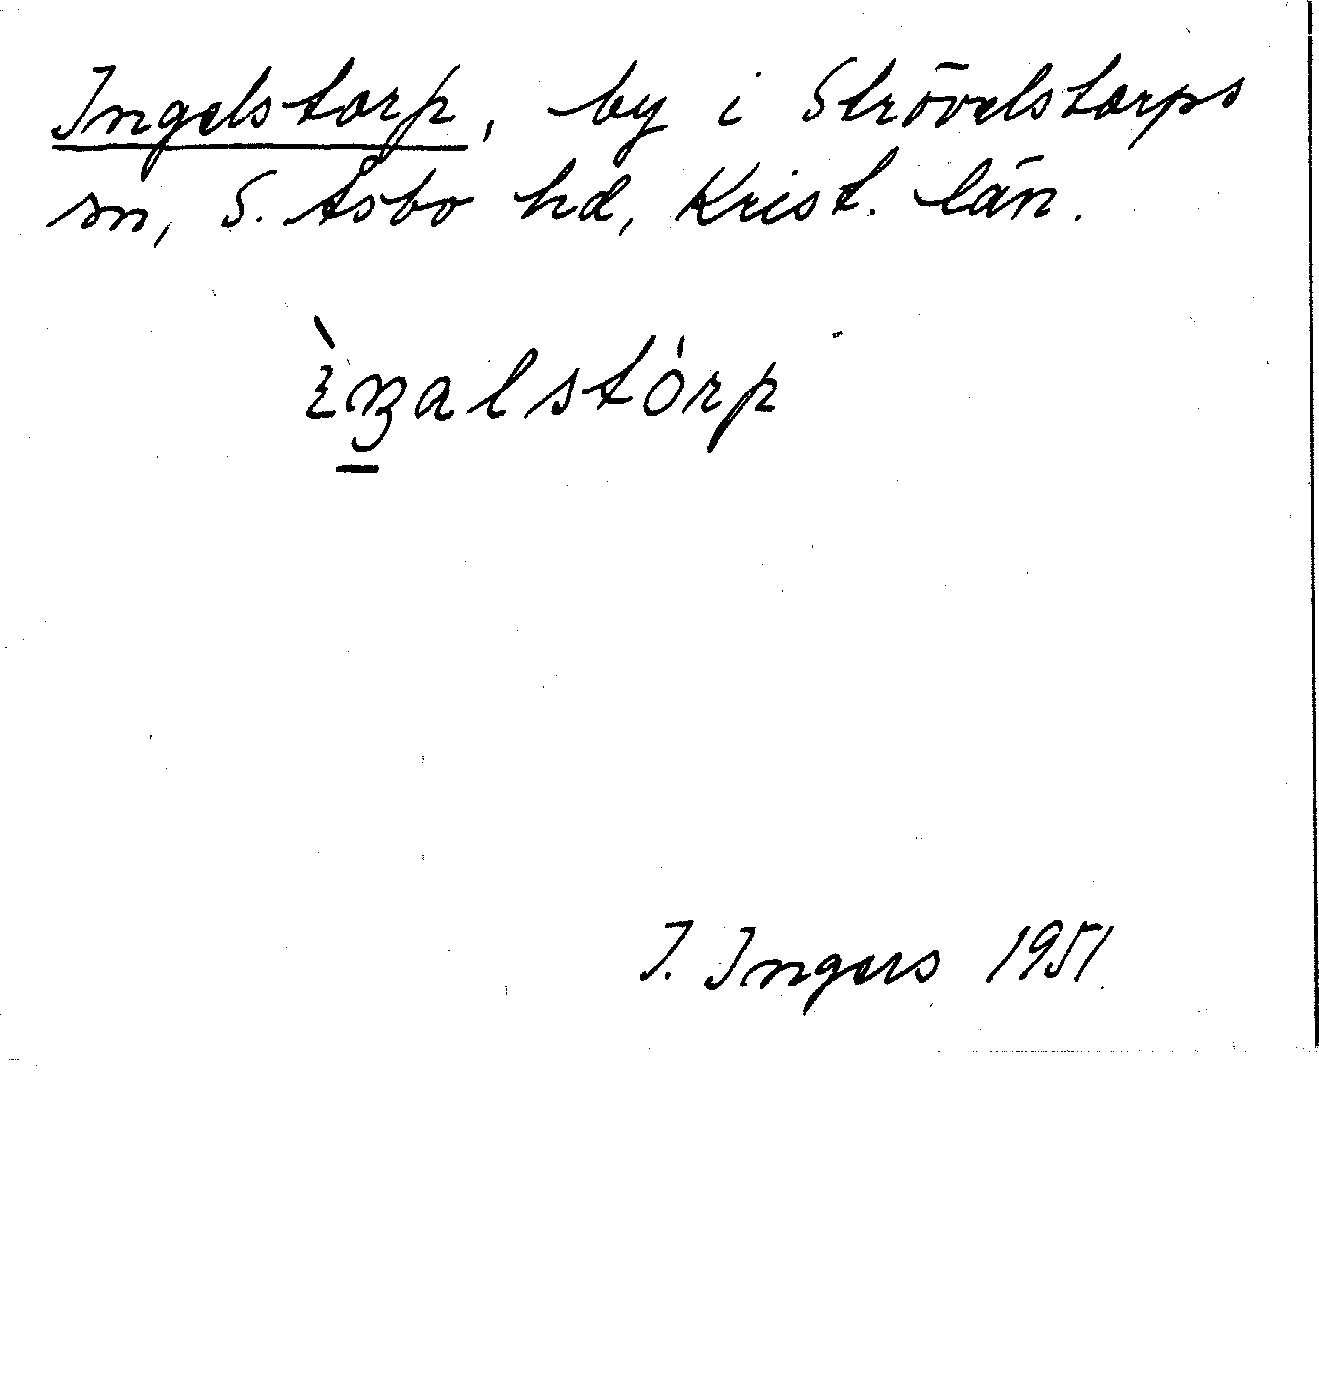 Ingelstorp, by i Strövelstorps
sn, S. Åsbo hd, Krist. län.
I. Ingers 1951